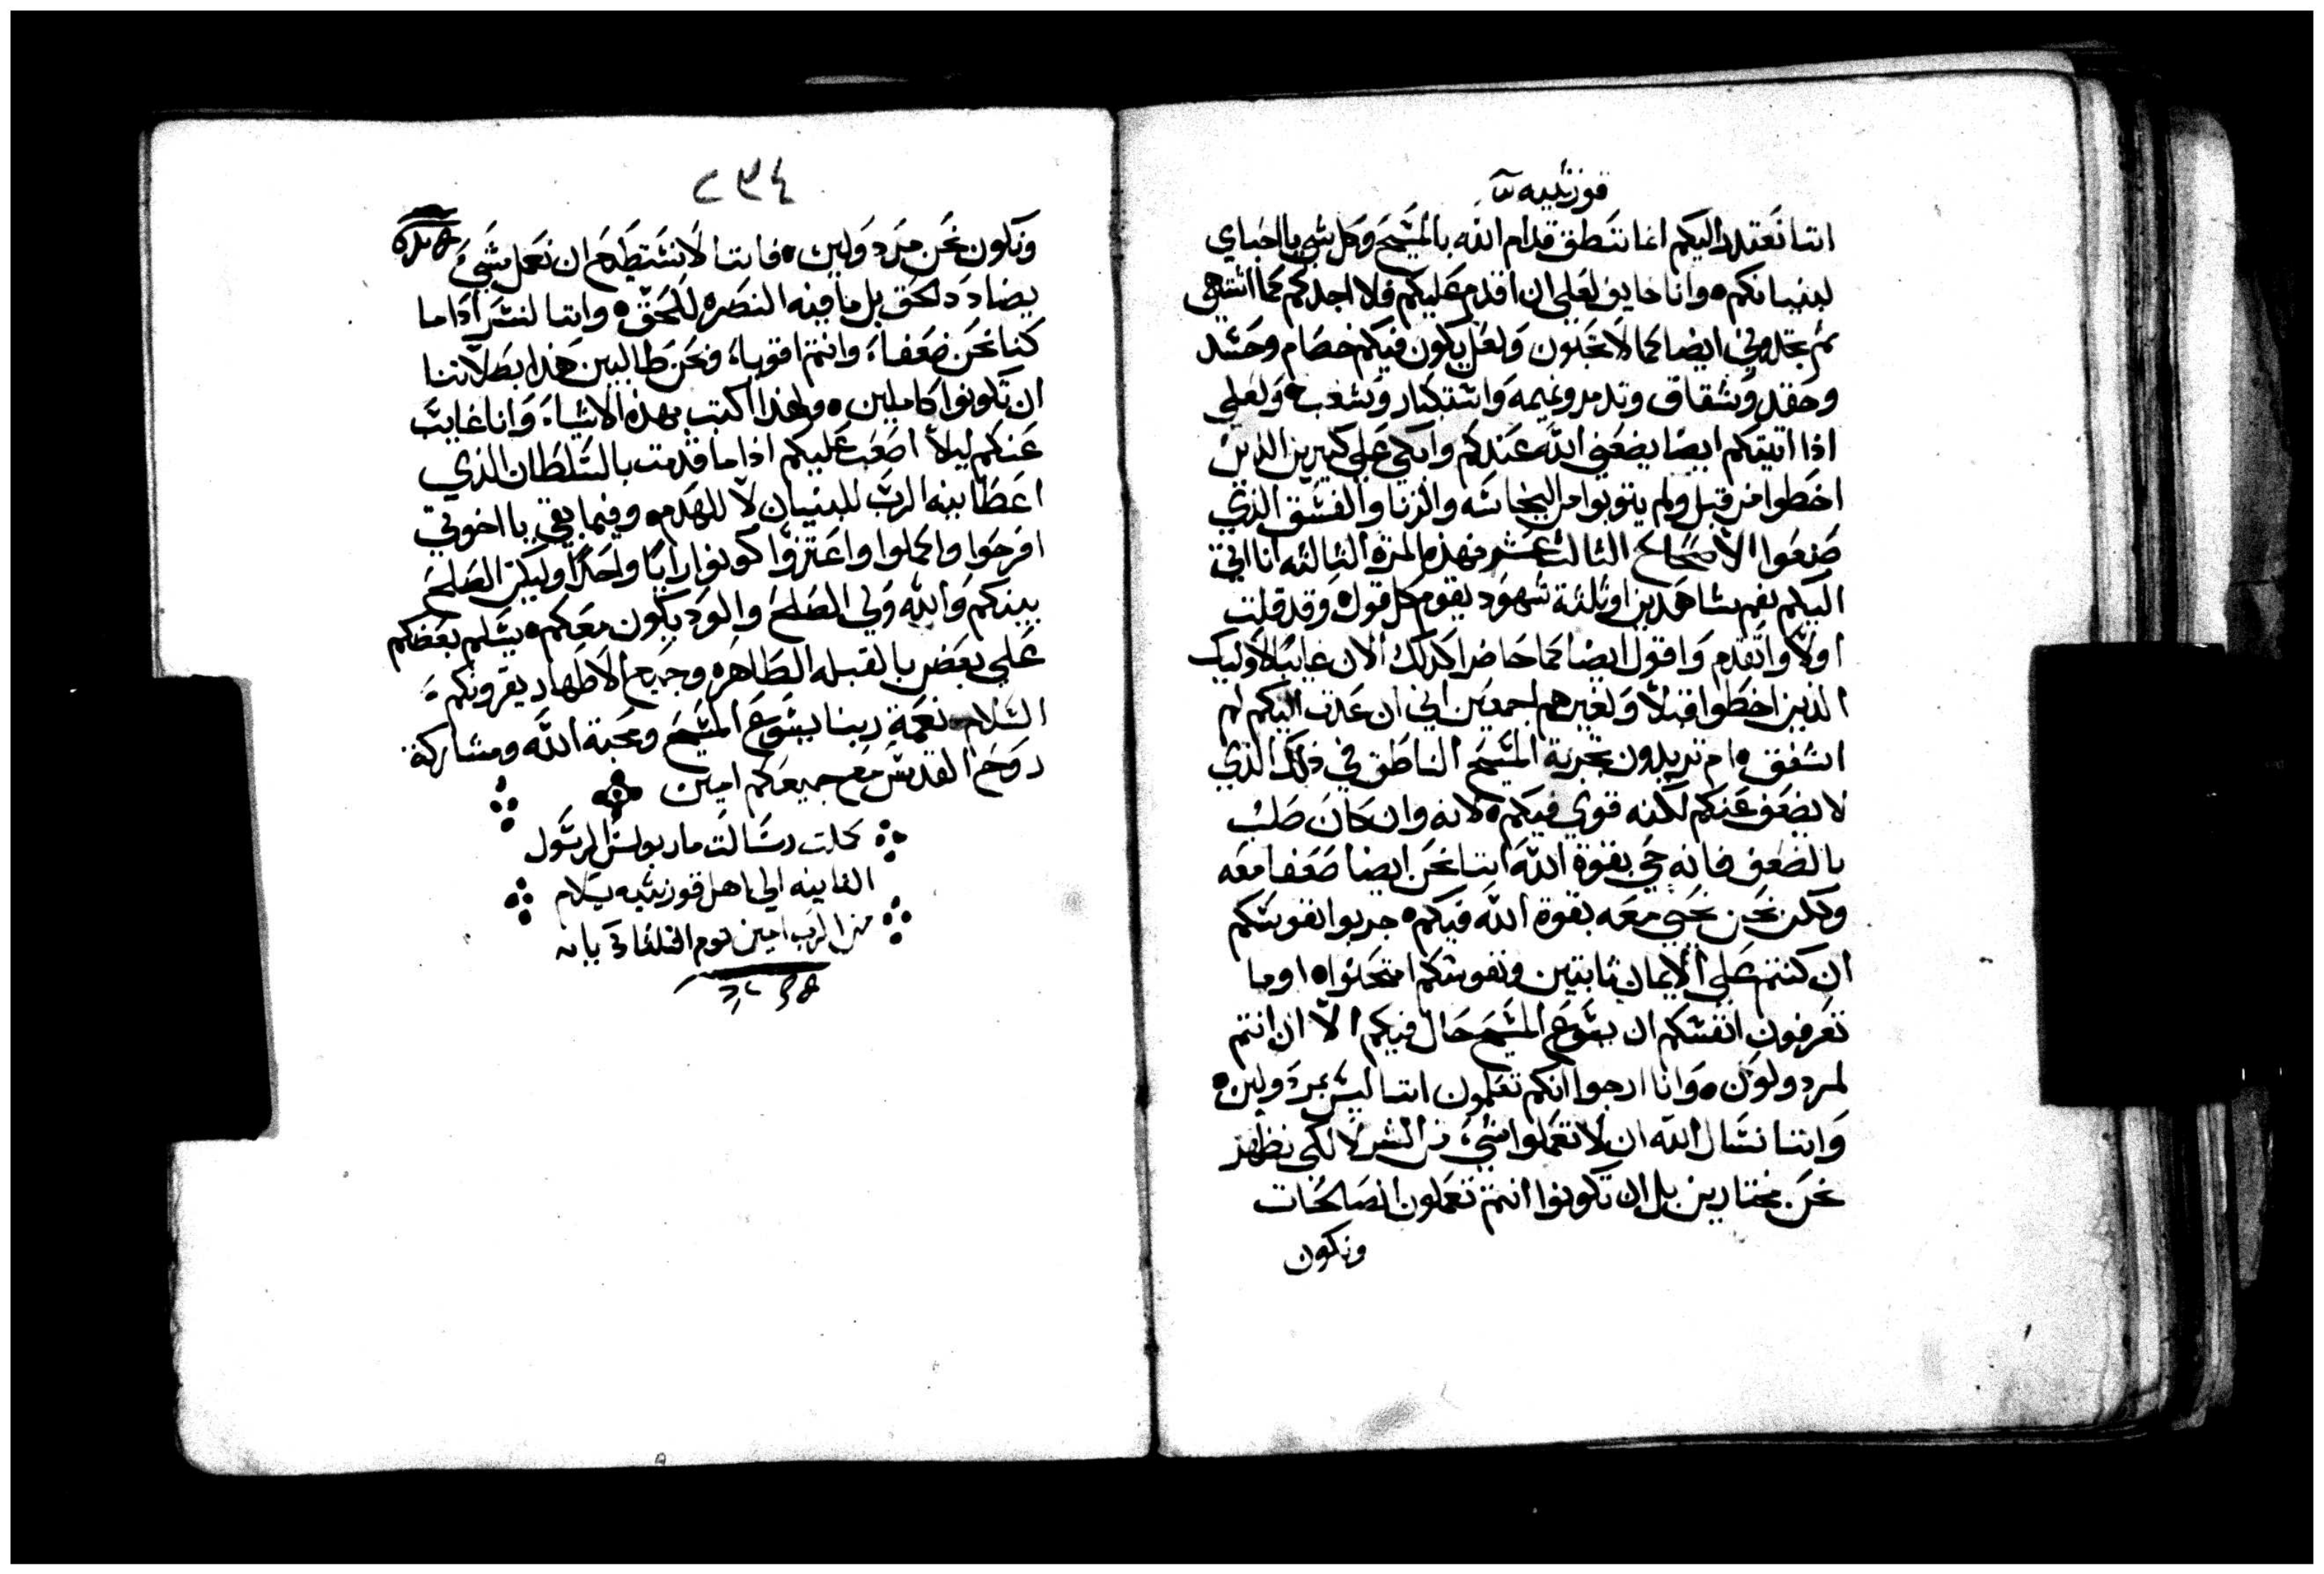 قورنثيه
اننا نعتذر اليكم انما ننطق قدام الله بالمسيح وكل شي يا احباي
لبنيانكم وانا خايف لعلي ان اقدم عليكم فلا اجدكم كما اشتهي
ثم تجدوني ايضا كما لا تحبون ولعل يكون فيكم خصام وحسد
وحقد وشقاق وتذمر ونميمه واستكبار وشغب ولعلي
اذا اتيتكم ايضا يضعني الله عندكم وابكي علي كثيرين الذين
اخطوا من قبل ولم يتوبوا من النجاسه والزنا والفسق الذي
صنعوا الاصحاح الثالث عشر فهذه المرة الثالثه انا اتي
اليكم بفم شاهدين او ثلثة شهود يقوم كل قول وقد قلت
اولا واتقدم واقول ايضا كما حاضرا كذلك الان غايبا لاوليك
الذين اخطوا قبلا ولغيرهم اجمعين اني ان عدت اليكم لم
اشفق ام تريدون تجربة المسيح الناطق في ذلك الذي
لا يضعف عنكم لكنه قوي فيكم لانه وان كان صلب
بالضعف فانه حي بقوة الله اننا نحن ايضا ضعفا معه
ولكن نحن نحيي معه بقوة الله فيكم جربوا نفوسكم
ان كنتم علي الايمان ثابتين ونفوسكم امتحنوا او ما
تعرفون انفسكم ان يسوع المسيح حال فيكم الا ان انتم
لمردولون وانا ارجوا انكم تعلمون اننا ليس بمردولين
واننا نسال الله ان لا تعملوا شيء من الشر لا لكي نظهر
نحن مختارين بل ان تكونوا انتم تعملون الصالحات
ونكون
٢٣٤
ونكون نحن مردولين فاننا لا نستطيع ان نعمل شيء
يضادد للحق بل ما فيه النصره للحق واننا لنسر اداما
كنا نحن ضعفاء وانتم اقوياء ونحن طالبين هذا بصلاتنا
ان تكونوا كاملين ولهذا اكتب بهذه الاشياء وانا غايب
عنكم ليلا اصعب عليكم اذا ما قدمت بالسلطان الذي
اعطانيه الرب للبنيان لا للهدم وفيما بقي يا اخوتي
افرحوا واكملوا واعتزوا كونوا رايا واحدا وليكن الصلح
بينكم والله ولي الصلح والود يكون معكم يسلم بعضكم
علي بعض بالقبله الطاهره وجميع الاطهار يقرونكم
السلام نعمة ربنا يسوع المسيح ومحبة الله ومشاركة
روح القدس مع جميعكم امين
كملت رسالت مار بولس الرسول
الثانيه الي اهل قورنثيه بسلام
من الرب امين يوم الثلثا بابه